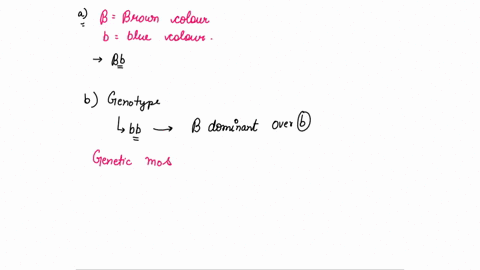 a) B = Brown colour
b = blue colour.
→ Bb
b) Genotype
↳ bb → B dominant over b
Genetic mos